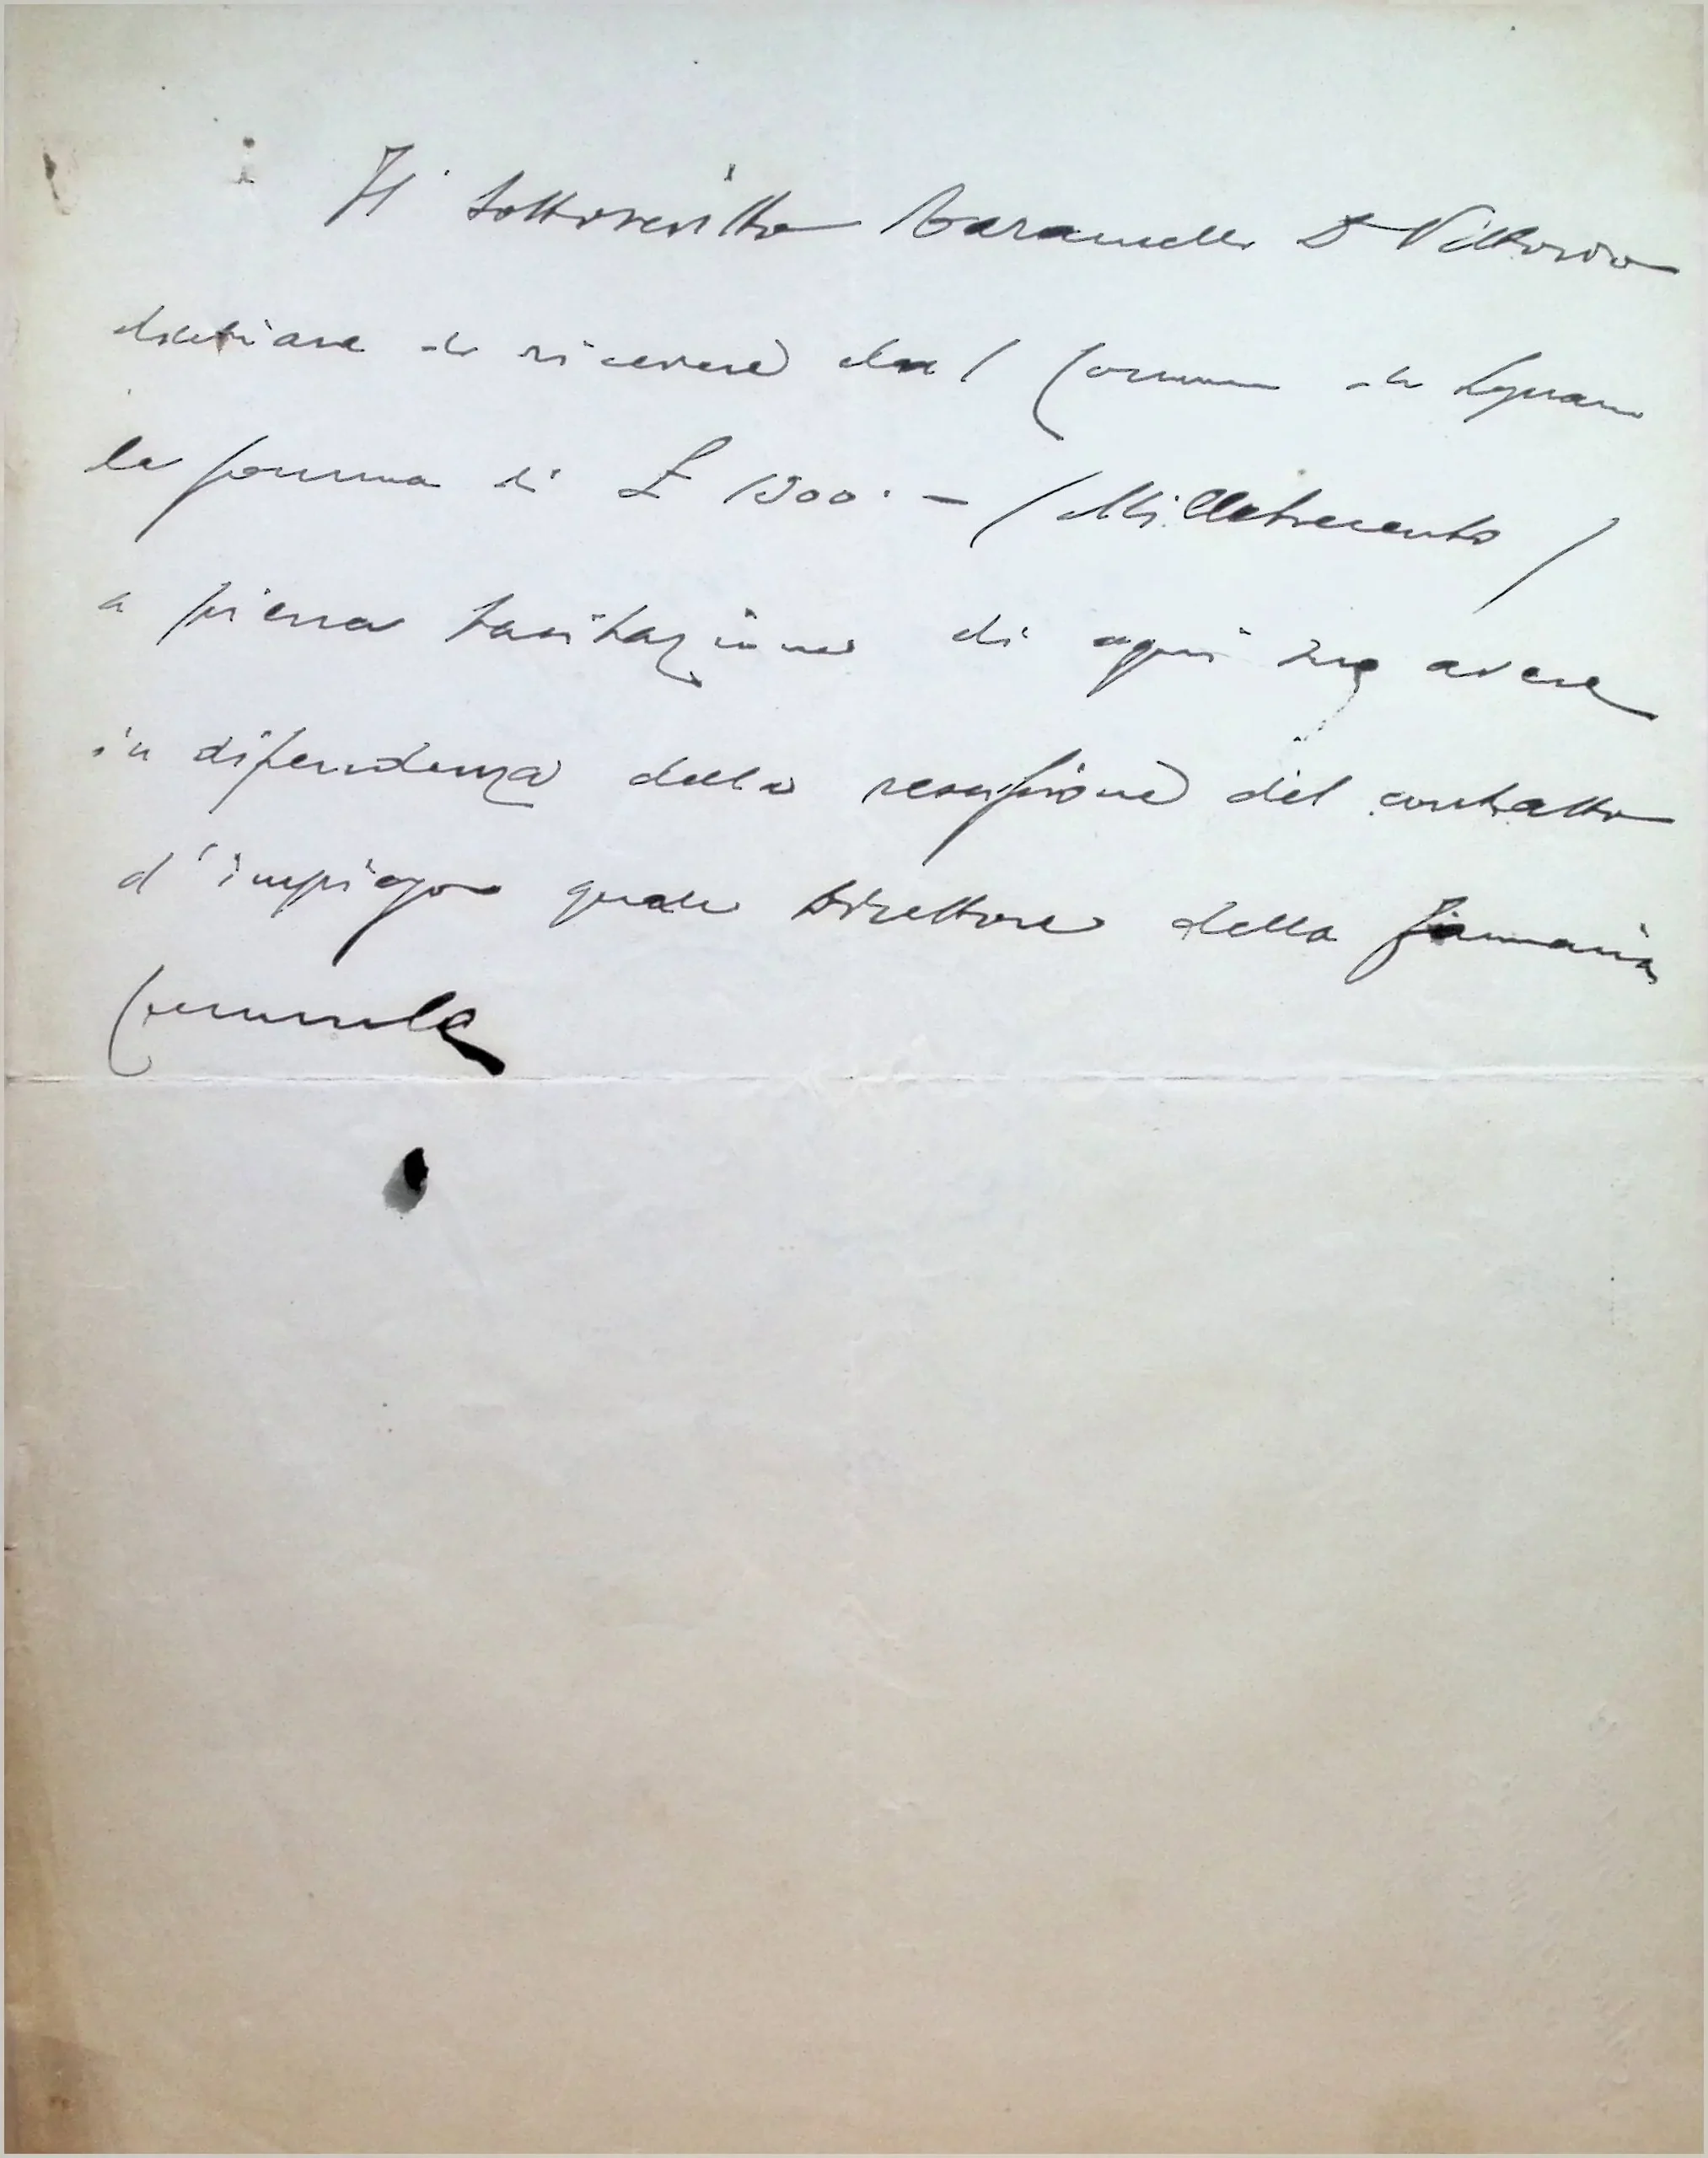 Il sottoscritto Caramelli Dr Vittorio
dichiara di ricevere dal Comune di Legnano
la somma di £ 1300.- (Milletrecento)
a piena tacitazione di ogni suo avere
in dipendenza della rescissione del contratto
d'impiego quale Direttore della farmacia
Comunale